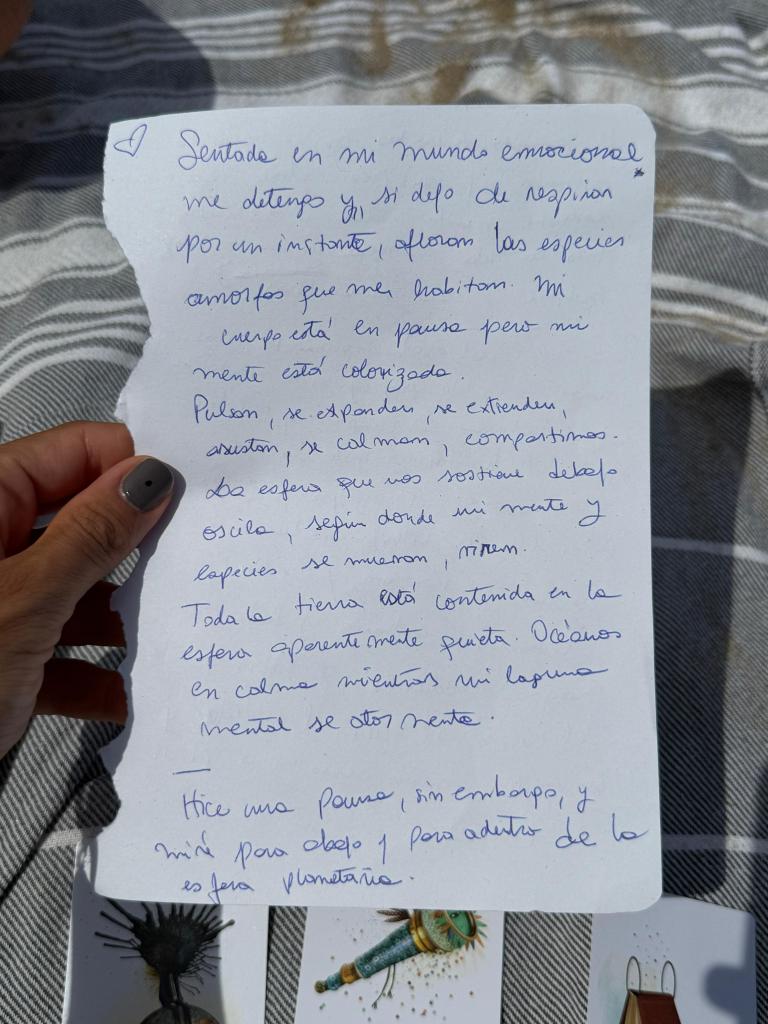 Sentada en mi mundo emocional
me detengo y, si dejo de respirar
por un instante, afloran las especies
amorfas que me habitan. Mi
cuerpo está en pausa pero mi
mente está colorizada.
Pulsan, se expanden, se extienden,
asustan, se calman, compartimos.
La esfera que nos sostiene debajo
oscila, según donde mi mente y
especies se muevan, miren.
Toda la tierra está contenida en la
esfera aparentemente quieta. Océanos
en calma mientras mi laguna
mental se atormenta.
Hice una pausa, sin embargo, y
miré para abajo y para adentro de la
esfera planetaria.